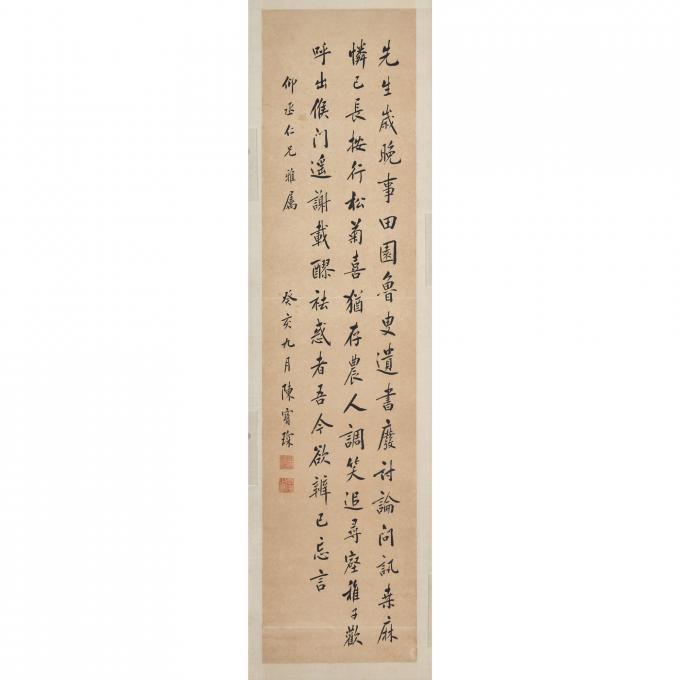 先生歲晚事田園魯叟遺書廢討論問訊桑麻
憐已長按行松菊喜猶存農人調笑追尋壑稚子歡
呼出候門遥謝載醪祛惑者吾今欲辨已忘言
仰丞仁兄雅属
癸亥九月陳寶琛